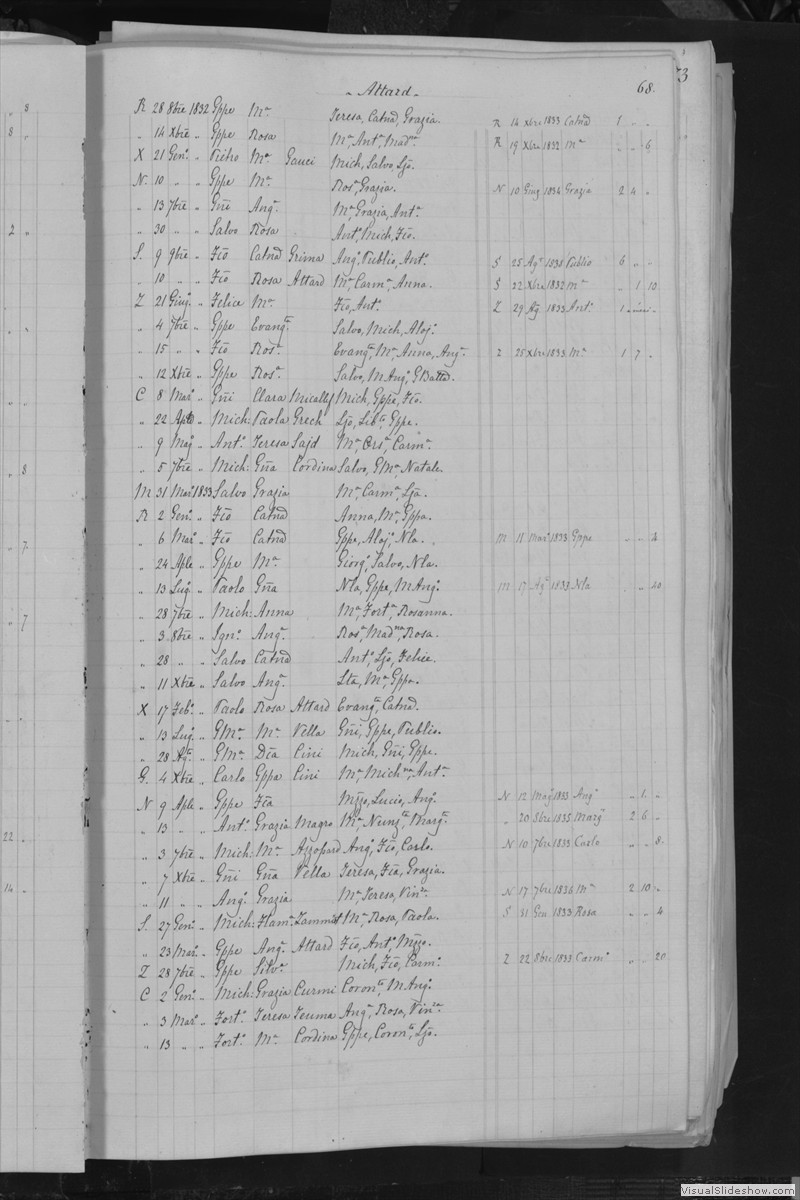 73
- Attard - 68.
R 28 8bre 1832 Gppe Mª Teresa, Catnª, Grazia. R 14 Xbre 1833 Catnª 1 " "
" 14 Xbre " Gppe Rosa Mª, Antª, Madnª. R 19 Xbre 1832 Mª " " 6
X 21 Genº " Pietro Mª Gauci Mich, Salvo, Ljo.
N. 10 " " Gppe Mª Rosª, Grazia. N 10 Giug 1834 Grazia 2 4 "
" 13 7bre " Gñi Angª. Mª, Grazia, Antª
" 30 " " Salvo Rosa Antº, Mich, Fco.
S. 9 9bre " Fco Catnª Grima Angº, Publio, Antº. S 25 Agº 1838 Publio 6 " "
" 10 " " Fco Rosa Attard Mª, Carmª, Anna. S 22 Xbre 1832 Mª " 1 10
Z 21 Giugº " Felice Mª Fco, Antº. Z 29 Ag 1833 Antº. 1
" 4 7bre " Gppe Evangª. Salvo, Mich, Alojº.
" 15 " " Fco Rosª. Evangª, Mª, Anna, Angª. Z 25 Xbre 1833 Mª 1 7 "
" 12 Xbre " Gppe Rosª. Salvo, M Angº, GBatta.
C 8 Marº " Gñi Clara Micallef Mich, Gppe, Fco.
" 22 Aple " Mich: Paola Grech Ljo, Libª, Gppe.
" 9 Magº " Antº. Teresa Sajd Mª, Orsª, Carmª.
" 5 7bre " Mich: Gña Cordina Salvo, GMª, Natale.
M 31 Marº 1833 Salvo Grazia Mª, Carmª, Ljo.
R 2 Genº " Fco Catnª Anna, Mª, Gppa.
" 6 Marº " Fco Catnª Gppe, Alojº, Nla. M 11 Marº 1833 Gppe " "
" 24 Aple " Gppe Mª Giorgº, Salvo, Nla.
" 13 Lugº " Paolo Gña Nla, Gppe, M Angº. M 17 Agº 1833 Nla " " 20
" 28 7bre " Mich: Anna Mª, Fortª, Rosanna.
" 3 8bre " Ignº. Angª. Rosª, Madnª, Rosa.
" 28 " " Salvo Catnª Antº, Ljo, Felice.
" 11 Xbre " Salvo Angª. Lta, Mª, Gppa.
X 17 Febº " Paolo Rosa Attard Evangª, Catnª.
" 13 Lugº " GMª Mª Vella Gñi, Gppe, Publio.
" 28 Agº " GMª Dca Cini Mich, Gñi, Gppe.
G. 4 Xbre " Carlo Gppa Cini Mª, Michª, Antª
N 9 Aple " Gppe Fca Mzzo, Lucio, Angº. N 12 Magº 1833 Angº " 1 "
" 13 " " Antº. Grazia Magro Mª, Nunzª, Margª. " 20 8bre 1835 Margª 2 6 "
" 3 7bre " Mich: Mª Azzopard Angº, Fco, Carlo. N 10 7bre 1833 Carlo " " 8.
" 7 Xbre " Gñi Gña Vella Teresa, Fca, Grazia.
" 11 " " Angº. Grazia Mª, Teresa, Vinª. N 17 7bre 1834 Mª 2 10 "
S. 27 Genº " Mich: Flamª. Zammit Mª, Rosa, Paola. S 31 Gen 1833 Rosa " " 4
" 23 Marº " Gppe Angª. Attard Fco, Antº, Mzzo.
Z 28 7bre " Gppe Silvª. Mich, Fco, Carmº. Z 22 8bre 1833 Carmº " " 20
C 2 Genº " Mich: Grazia Curmi Coronª, M Angº.
" 3 Marº " Fortº. Teresa Teuma Angª, Rosa, Vinª.
" 13 " " Fortº. Mª Cordina Gppe, Coronª, Ljo.
VisualSlideshow.com